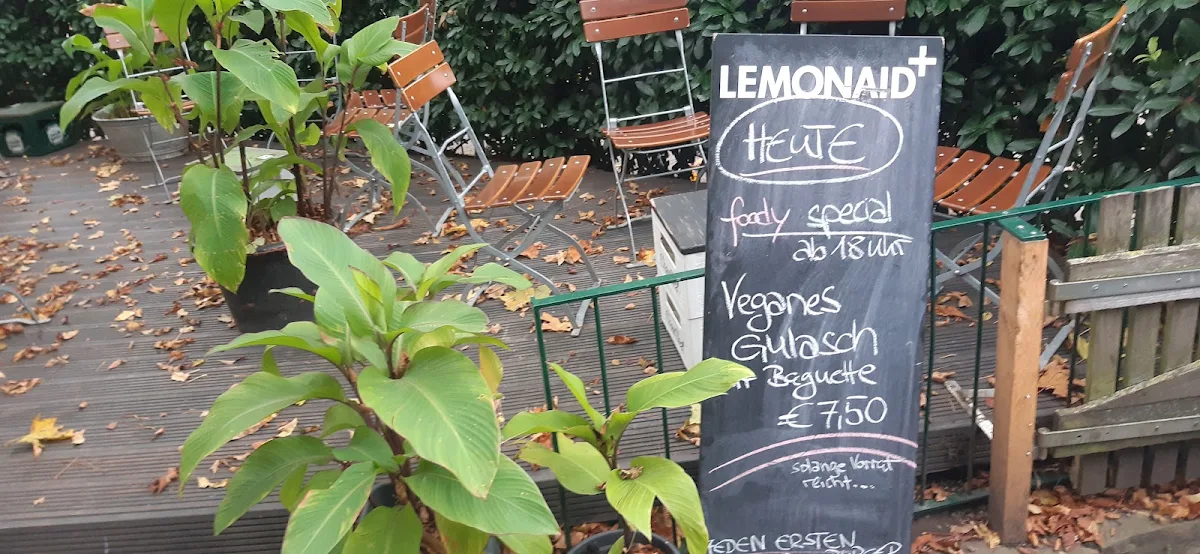 LEMONAID+
HEUTE
foody special
ab 18 Uhr
Veganes
Gulasch
Baguette
€7,50
solange Vorrat
reicht...
JEDEN ERSTEN